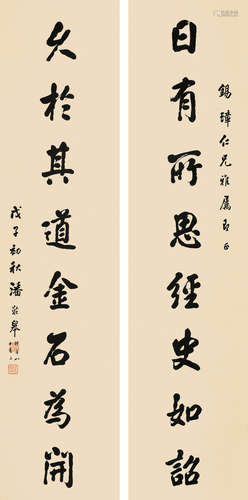 錫璋仁兄雅屬即正
日有所思經史如詔
久於其道金石為開
戊子初秋潘齡皋